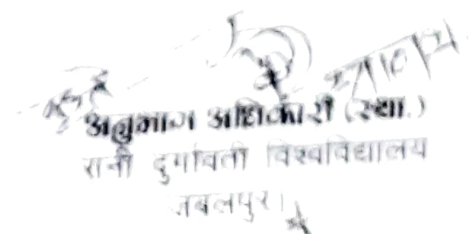 अनुभाग अधिकारी (स्था.)
रानी दुर्गावती विश्वविद्यालय
जबलपुर।